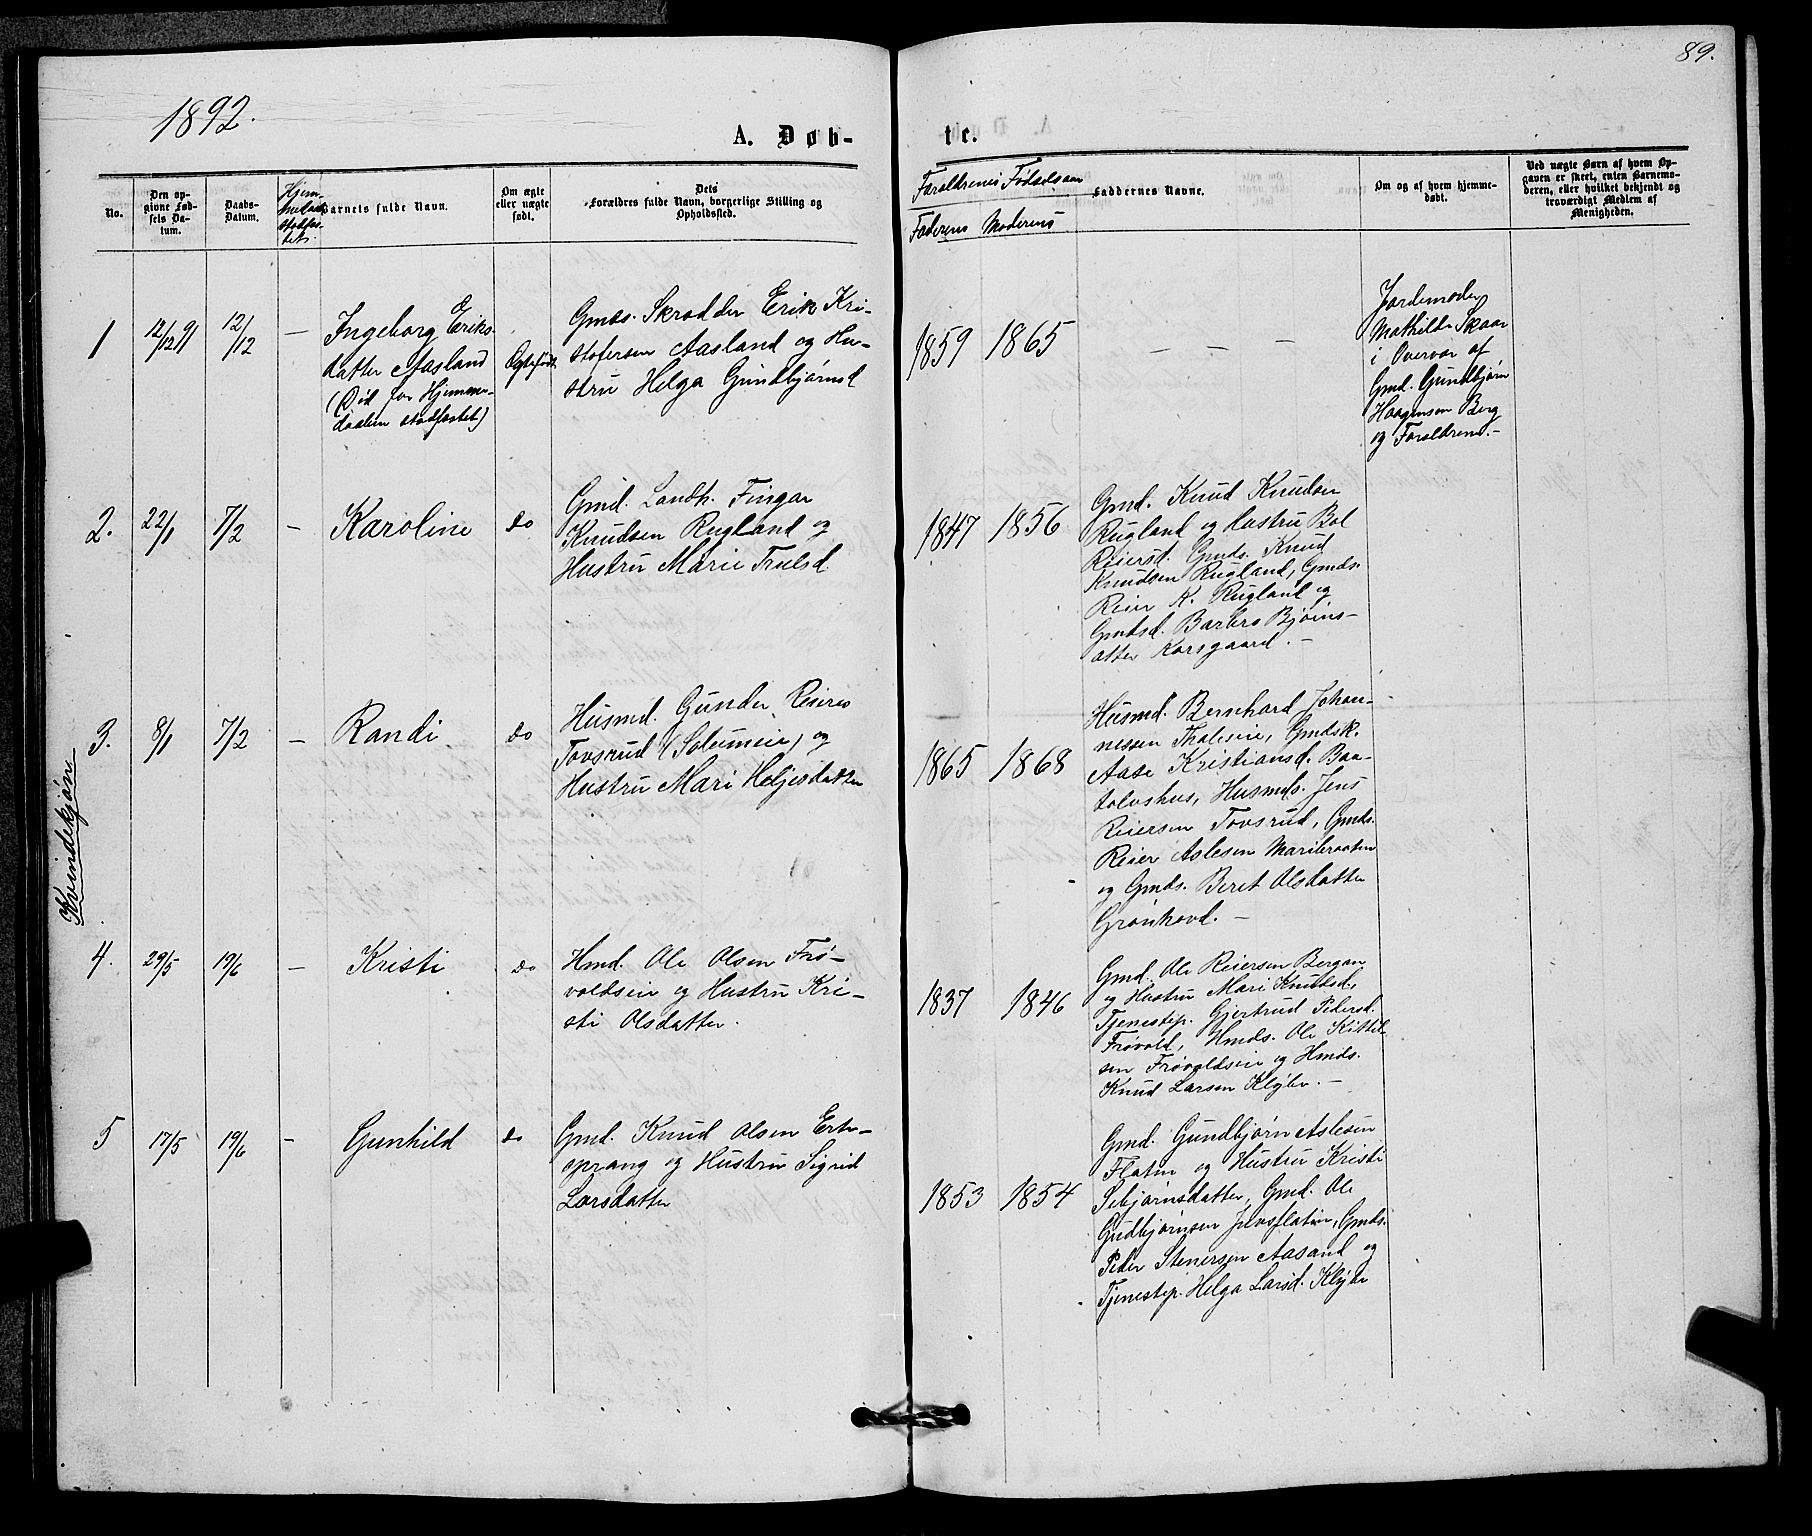 89.
1892.
A. Døb-
te.
No.
Den op-
givne Fød-
sels Da-
tum.
Daabs-
Datum.
Barnets fulde Navn.
Om ægte
eller uægte
født.
Dets
Forældres fulde Navn, borgerlige Stilling og
Opholdssted.
Forældrenes Fødselsaar
Faderens Moderens
Faddernes Navne.
Om og af hvem hjemme-
døbt.
Ved uægte Børn af hvem Op-
gaven er skeet, enten Barnemo-
deren, eller hvilket bekjendt og
troværdigt Medlem af
Menigheden.
Kvindekjøn
1
12/12 91
12/12
—
Ingeborg Eriks-
datter Aasland
(Død før Hjemme-
daaben stadfæstet)
Ægtefødt
Gmds. Skrædder Erik Kri-
stofersen Aasland og Hu-
stru Helga Gundbjørnsd
1859
1865
— — —
Jordemoder
Mathilde Skaar
i Overvær af
Gmd. Gundbjørn
Haagensen Berg
og Forældrene.-
2.
22/1
7/2
—
Karoline
do
Gmd. Landh. Fingar
Knudsen Rugland og
Hustru Marie Trulsd.
1847
1856
Gmd. Knud Knudsen
Rugland og Hustru Bol
Reiersd. Gmds. Knud
Knudsen Rugland, Gmds.
Reier K. Rugland og
Gmdsd. Barbro Bjørns-
atter Korsgaard. -
3.
8/1
7/2
—
Randi
do
Husmd. Gunder Reiers
Tovsrud (Solumeie) og
Hustru Mari Heljesdatter
1865
1868
Husmd. Bernhard Johan-
nessen Tholeseie, Gmdsk.
Aase Kristiansd. Baa-
tolvshus, Husmds. Jens
Reiersen Tovsrud, Gmds.
Reier Aslesen Maribraaten
og Gmds. Beret Olsdatter
Grønhovd. -
4.
29/5
19/6
—
Kristi
do
Hmd. Ole Olsen Frø-
voldseie og Hustru Kri-
sti Olsdatter.
1837
1846
Gmd. Ole Reiersen Bergan
og Hustru Mari Knudsd,
Tjenestep. Gjertrud Pedersd.
Frøvold, Hmds. Ole Kittil-
sen Frøvoldseie og Hmds.
Knud Larsen Kløbr. -
5
17/5
19/6
-
Gunhild
do
Gmd. Knud Olsen Erte-
sprang og Hustru Sigrid
Larsdatter
1853
1854
Gmd. Gundbjørn Aslesen
Flaten og Hustru Kristi
Sebjørnsdatter, Gmd. Ole
Gudbjørnsen Juvsflaten, Gmds.
Peder Stenersen Aasand og
Tjenestep. Helga Larsd. Kløbr